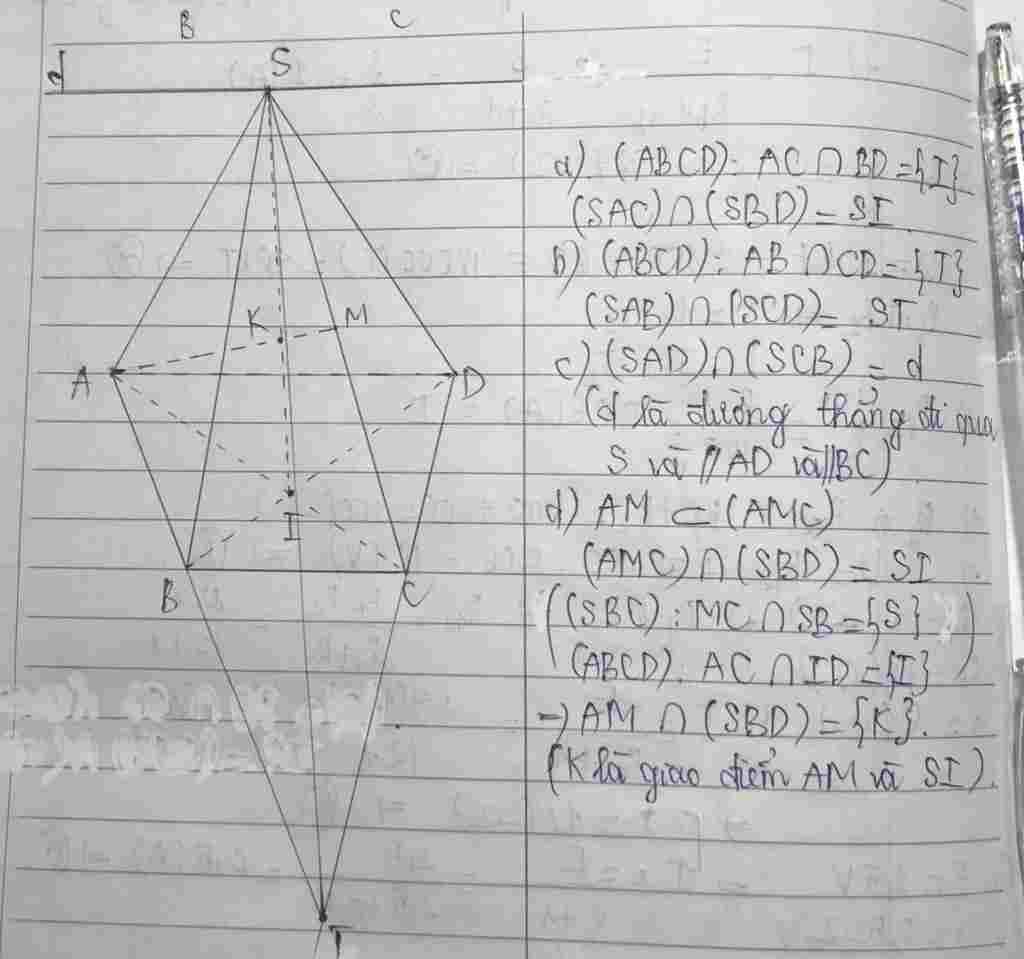 B C
d S
K M
A D
I
B C
T
a) (ABCD): AC ∩ BD = {I}
(SAC) ∩ (SBD) = SI
b) (ABCD): AB ∩ CD = {T}
(SAB) ∩ (SCD) = ST
c) (SAD) ∩ (SCB) = d
(d là đường thẳng đi qua
S và // AD và // BC)
d) AM ⊂ (AMC)
(AMC) ∩ (SBD) = SI
(SBC): MC ∩ SB = {S}
(ABCD). AC ∩ ID = {I}
→) AM ∩ (SBD) = {K}.
(K là giao điểm AM và SI).